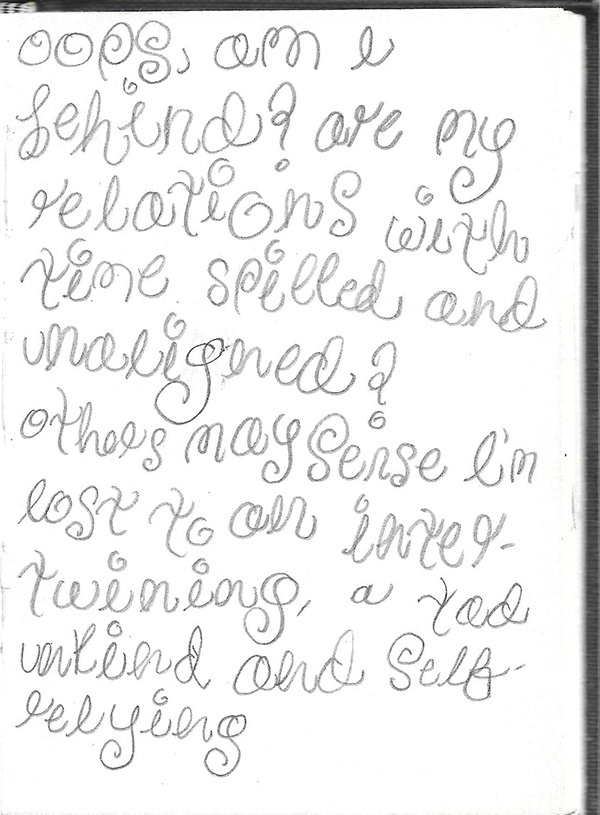 oops, am i
behind? are my
relations with
time spilled and
unaligned?
others may sense I'm
lost to an inter-
twining, a tad
unkind and self-
relying